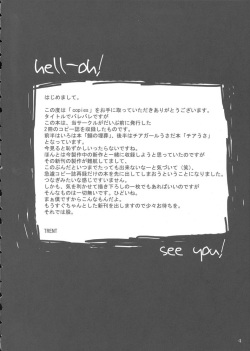 hell-oh!
はじめまして。
この度は「copies」をお手に取っていただきありがとうございます。
タイトルでバレバレですが
この本は、当サークルがだいぶ前に発行した
2冊のコピー誌を収録したものです。
前半はいろは本「猫の寝言」、後半はチアガールうさだ本「チアうさ」
となっています。
今見ると恥ずかしいったらないですね。
ほんとは今製作中の新作と一緒に収録しようと思っていたのですが
その新刊の製作が難航してまして。
このぶんだといつまでたっても出来ないなーと気づいて(笑)、
急遽コピー誌再録だけの本を先に出してしまおうということになりました。
つなぎみたいな感じですいません。
しかも、気を利かせて描き下ろしの一枚でもあればいいのですが
そんなものは一切無いです。ひどいね。
まぁ僕ですからこんなもんだよ。
もうすぐちゃんとした新刊を出しますので少々お待ちを。
それでは版。
TRENT
see you!
4